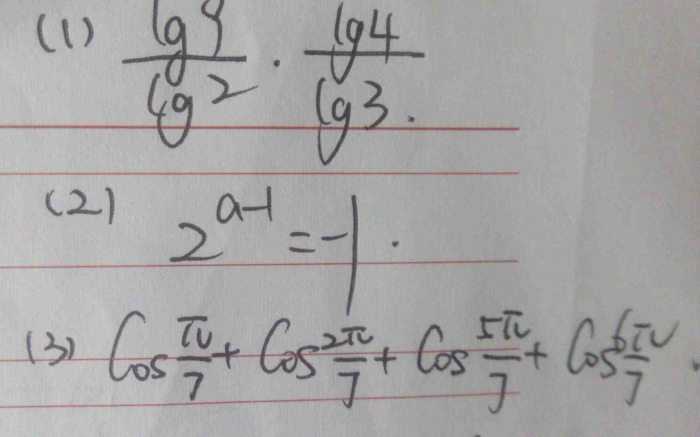 (1) lg9/lg2 · lg4/lg3.
(2) 2^(a-1) = -1.
(3) Cos π/7 + Cos 2π/7 + Cos 5π/7 + Cos 6π/7.